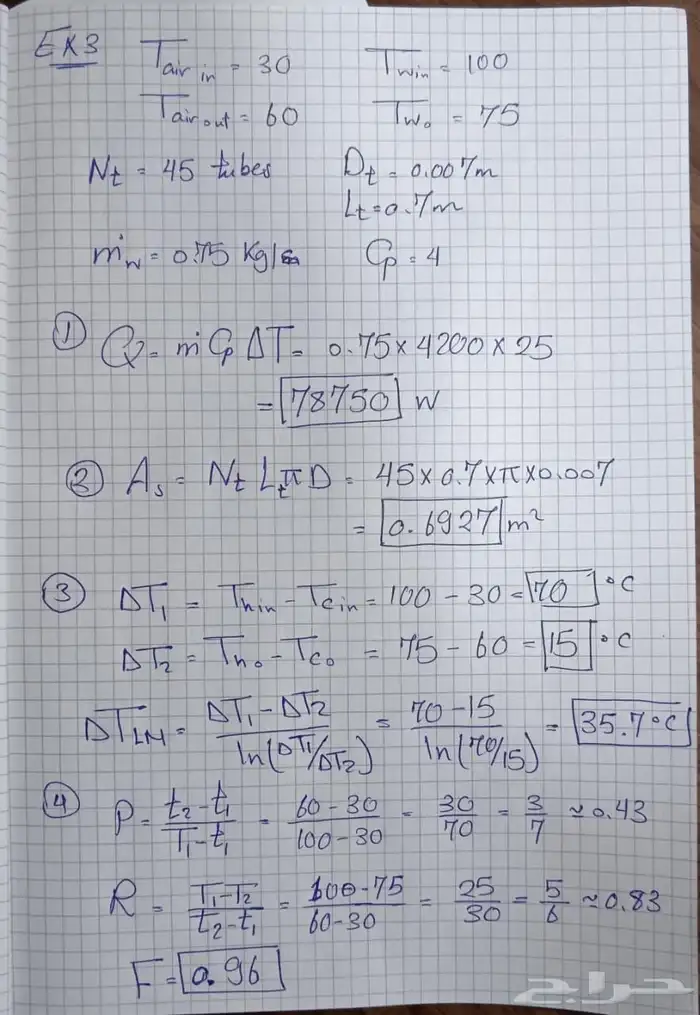 EX3 T air in = 30 T w in = 100
T air out = 60 T w o = 75
Nt = 45 tubes Dt = 0.007m
Lt = 0.7m
ṁw = 0.75 Kg/s Cp = 4
① Q = ṁ Cp ΔT = 0.75 × 4200 × 25
= 78750 W
② As = Nt Lt π D = 45 × 0.7 × π × 0.007
= 0.6927 m²
③ ΔT1 = Th in - Tc in = 100 - 30 = 70 °C
ΔT2 = Th o - Tc o = 75 - 60 = 15 °C
ΔTLM = (ΔT1 - ΔT2) / ln(ΔT1/ΔT2) = (70 - 15) / ln(70/15) = 35.7 °C
④ P = (t2 - t1) / (T1 - t1) = (60 - 30) / (100 - 30) = 30/70 = 3/7 ≈ 0.43
R = (T1 - T2) / (t2 - t1) = (100 - 75) / (60 - 30) = 25/30 = 5/6 ≈ 0.83
F = 0.96
حراج